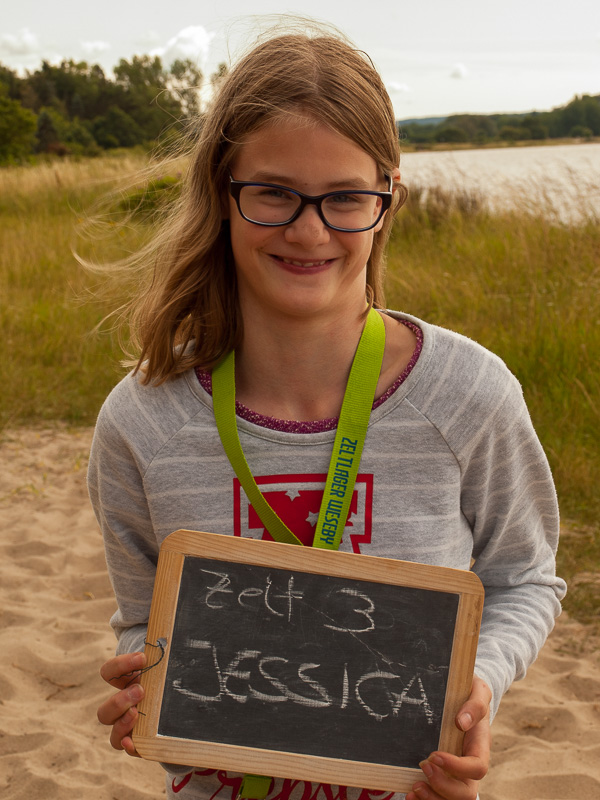 ZELTLAGER WESEBY
Zelt 3
JESSICA